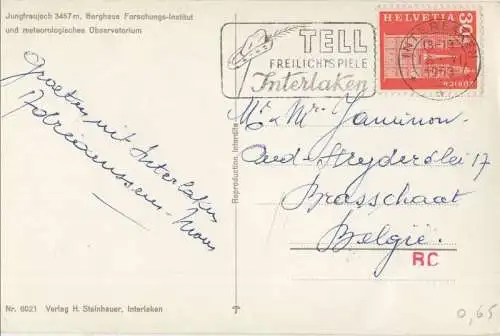 Jungfraujoch 3457 m, Berghaus Forschungs-Institut
und meteorologisches Observatorium
TELL
FREILICHTSPIELE
Interlaken
HELVETIA
30
Groeten uit Interlaken
Reproduction interdite
Mr & Mr
17
Brasschaat
België.
RC
Nr. 6021 Verlag H. Steinhauer, Interlaken
0,65